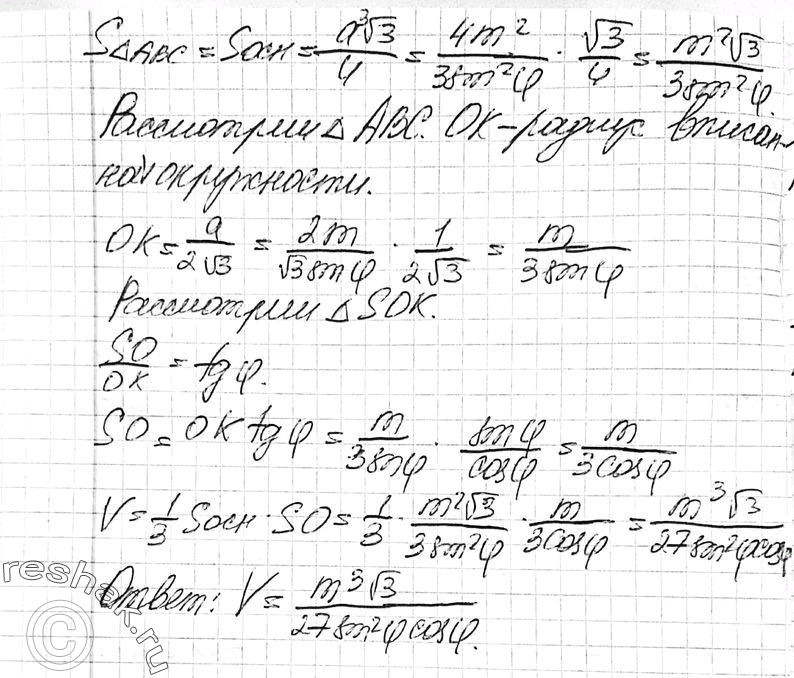 S△ABC = Sосн = a³√3/4 = 4m²/3sin²φ · √3/4 = m²√3/3sin²φ.
Рассмотрим △ ABC. OK – радиус вписан-
ной окружности.
OK = a/2√3 = 2m/√3 sinφ · 1/2√3 = m/3sinφ
Рассмотрим △ SOK.
SO/OK = tgφ.
SO = OK tgφ = m/3sinφ · sinφ/cosφ = m/3cosφ
V = 1/3 Sосн · SO = 1/3 · m²√3/3sin²φ · m/3cosφ = m³√3/27sin²φcosφ
Ответ: V = m³√3/27sin²φcosφ.
reshak.ru
©